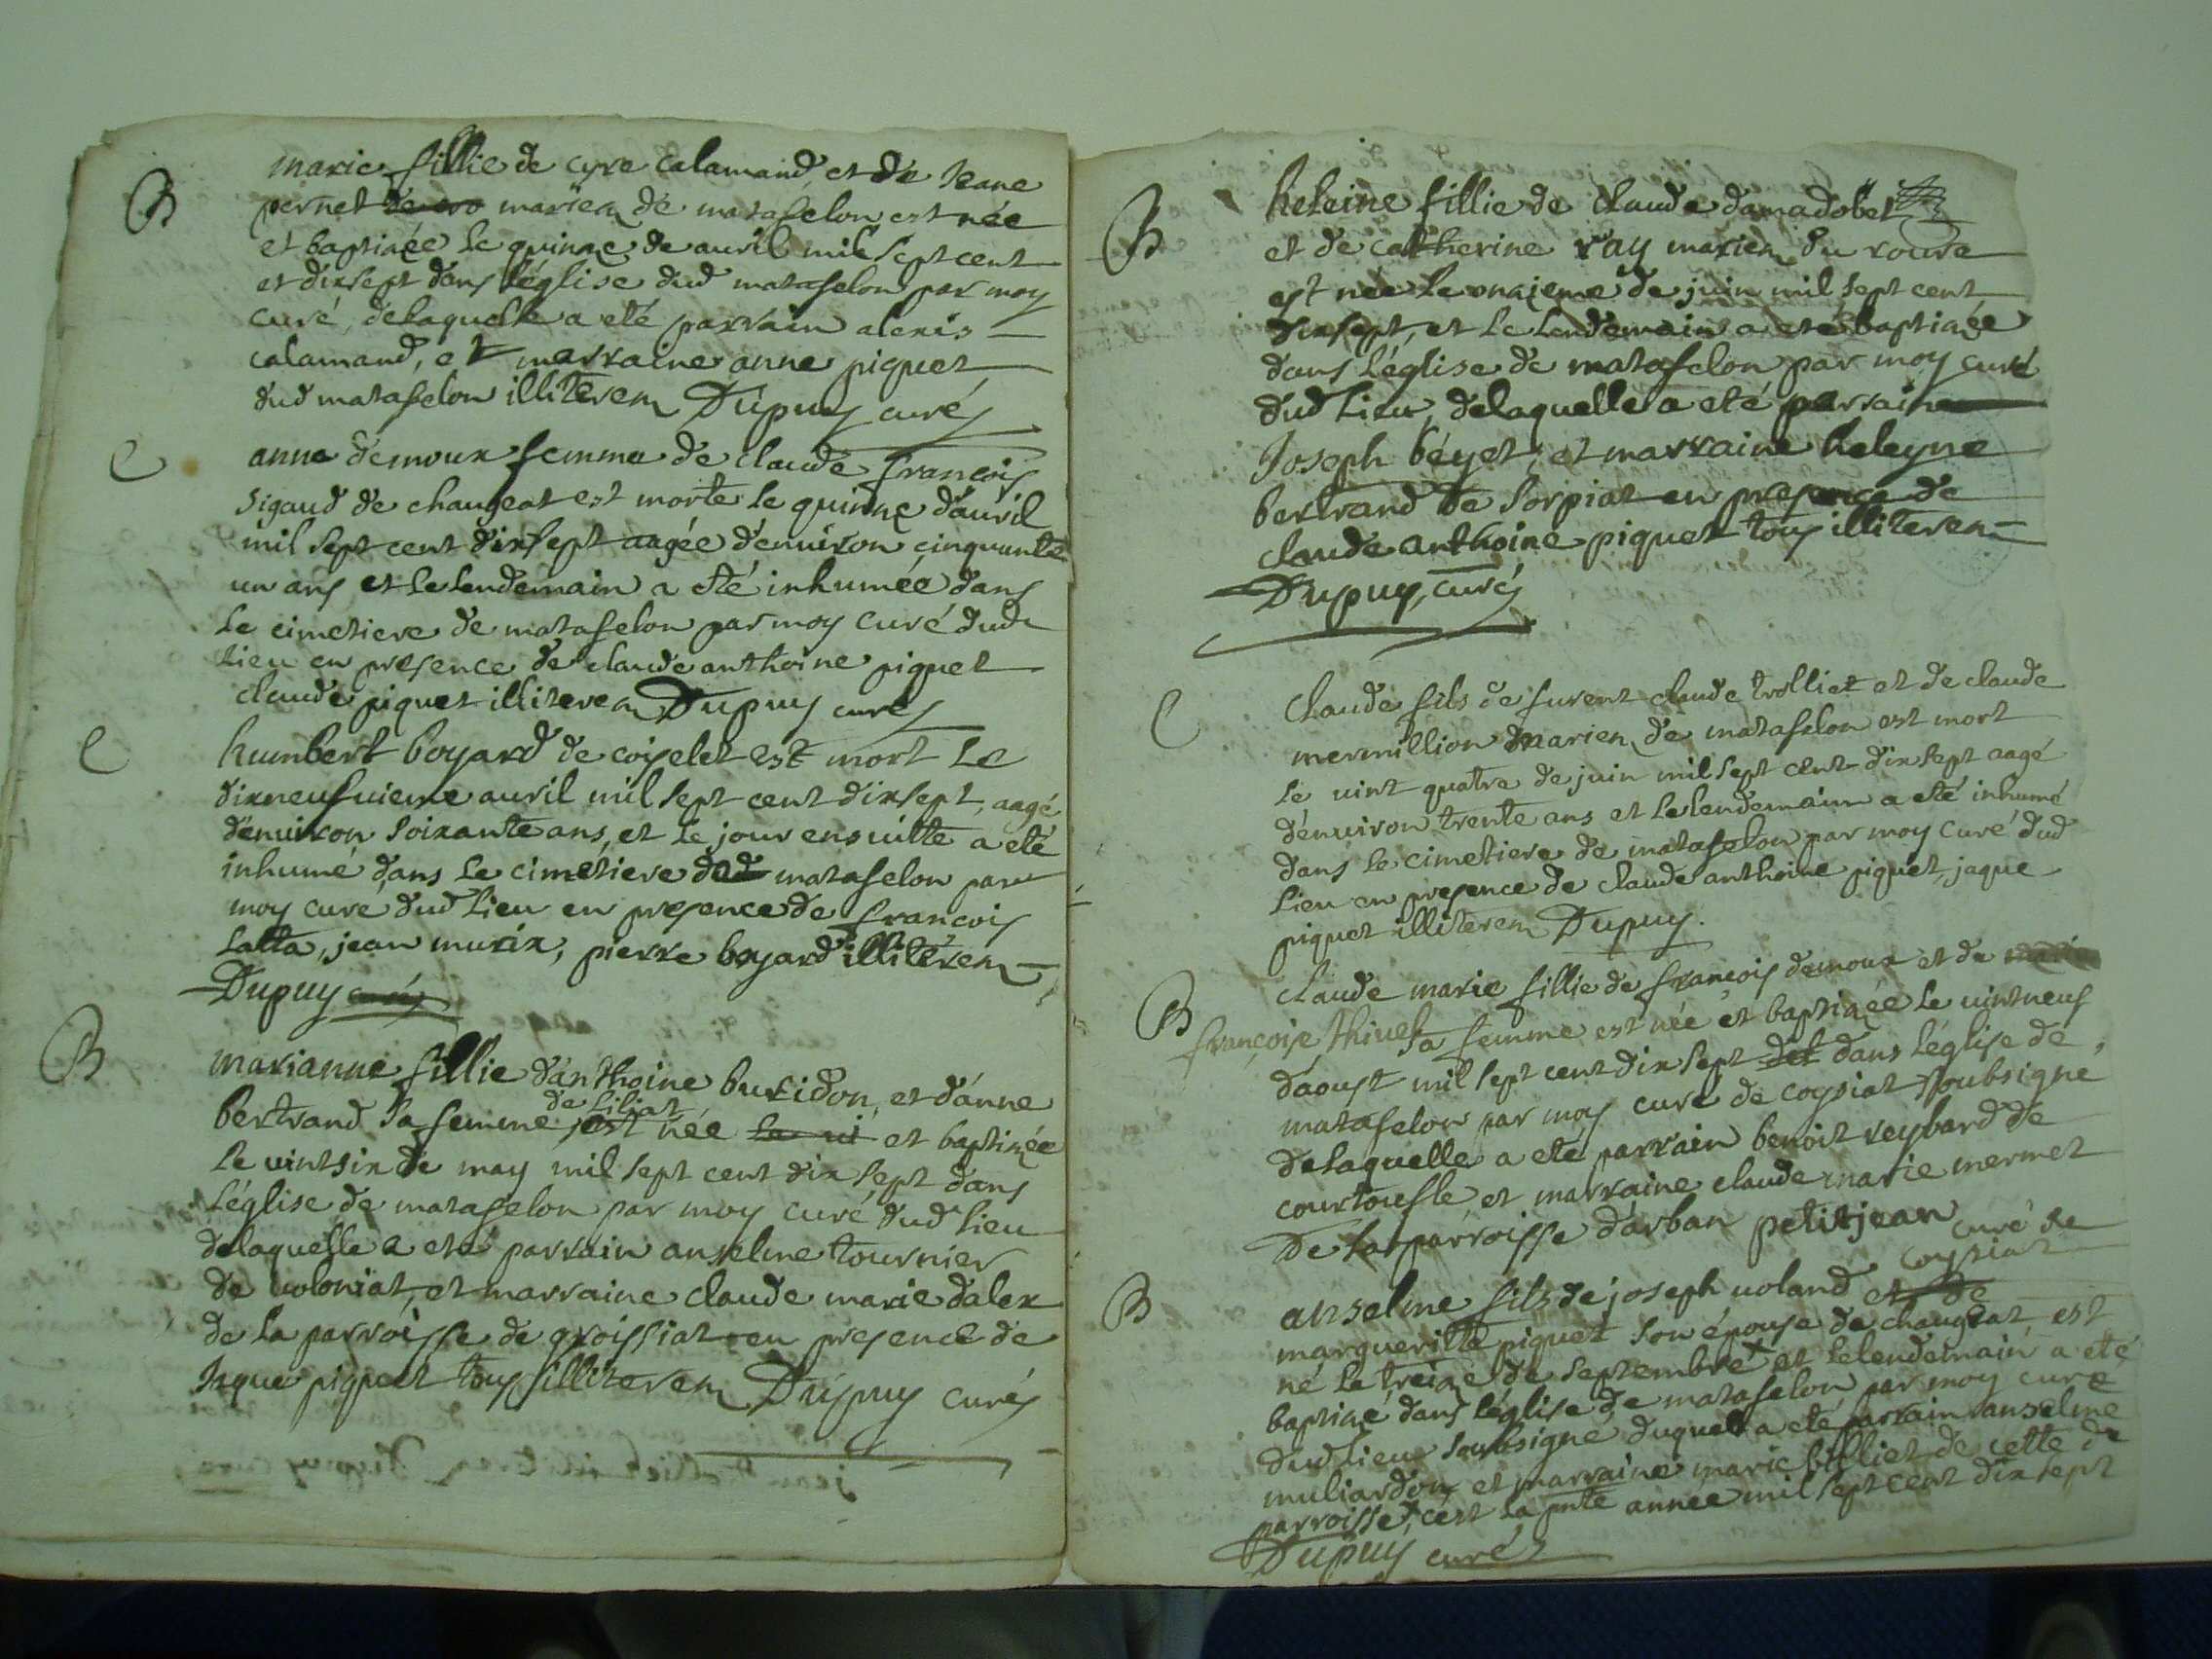 B
marie fillie de cyre calamand et de Jeane
pernet de ovo mariea de matafelon est née
et baptizée le quinze de auril mil sept cent
et dixsept dans l'église dud matafelon par moy
curé, delaquelle a eté parrain alexis
calamand, et marraine anne piquet
dud matafelon illiterem Dupuy curé
C
anne demoux femme de claude françois
sigaud de changeat est morte le quinze d'auril
mil sept cent dixsept aagée d'enuiron cinquante
un ans et le lendemain a eté inhumée dans
le cimetiere de matafelon par moy curé dud
lieu en presence de claude anthoine piquet
claude piquet illiterem Dupuy curé
C
humbert boyard de coiselet est mort le
dixneufuieme auril mil sept cent dixsept, aagé
d'enuiron soixante ans, et le jour ensuitte a eté
inhumé dans le cimetiere ded matafelon par
moy cure dud lieu en presence de françois
latta, jean murix, pierre boyard illiterem
Dupuy curé
B
marianne fillie d'anthoine buridon, et d'anne
de siliat
bertrand sa femme est née et baptizée
le uintsix de may mil sept cent dix sept dans
l'église de matafelon par moy curé dud lieu
delaquelle a eté parrain anselme tournier
de uoloniat, et marraine claude marie dalex
de la parroisse de groissiat en presence de
Jaque piquet tous illiterem Dupuy curé
B
heleine fillie de claude damadobet
et de catherine ray marien du roure
est née le onzieme de juin mil sept cent
dixsept, et le lendemain a eté baptizée
dans l'église de matafelon par moy curé
dud lieu, delaquelle a eté parrain
Joseph béyet, et marraine heleyne
bertrand de sorpiat en presence de
claude anthoine piquet tous illiterem
Dupuy, curé
C
Claude fils de furent claude trolliet et de claude
mermillion marien de matafelon est mort
le uint quatre de juin mil sept cent dix sept aagé
d'enuiron trente ans et le lendemain a eté inhumé
dans le cimetiere de matafelon par moy curé dud
lieu en presence de claude anthoine piquet, jaque
piquet illiterem Dupuy.
B
claude marie fillie de françois demoux et de
françoise thiuet sa femme est née et baptizée le uintneuf
d'aoust mil sept cent dix sept det dans l'église de
matafelon par moy curé de coysiat soubsigné
delaquelle a eté parrain benoit reybard de
courtoufle, et marraine claude marie mermet
De la parroisse d'arban petitjean curé de
coysiat
B
anselme fils de joseph uoland et de
margueritte piquet son épouse de changeat est
né le treize de septembre et le lendemain a eté
baptizé dans l'église de matafelon par moy curé
dud lieu soubsigné duquel a eté parrain anselme
muliardon et marraine marie billiet de cette de
parroisse, c'est la pnte année mil sept cent dix sept
Dupuy curé